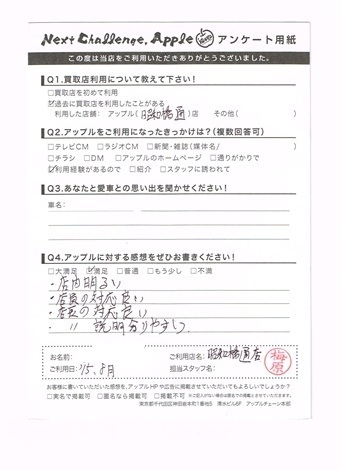 Next Challenge, Apple アンケート用紙
この度は当店をご利用いただきありがとうございました。
Q1.買取店利用について教えて下さい!
□買取店を初めて利用
☑過去に買取店を利用したことがある
利用した店舗: アップル(昭和橋通)店 その他( )
Q2.アップルをご利用になったきっかけは?(複数回答可)
□テレビCM □ラジオCM □新聞・雑誌(媒体名/ )
□チラシ □DM □アップルのホームページ □通りがかりで
☑利用経験があるので □紹介 □スタッフに誘われて
Q3.あなたと愛車との思い出を聞かせください!
車名:
Q4.アップルに対する感想をぜひお書きください!
□大満足 ☑満足 □普通 □もう少し □不満
・店内明るい
・店長の対応良い
・店員の対応良い
・〃 説明分りやすい
お名前: ご利用店名: 昭和橋通店
ご利用日: '15.8月 担当スタッフ名: 梅原
お客様に書いていただいた感想を、アップルHPや広告に掲載させていただいてもよろしいでしょうか?
□実名で掲載可 □匿名なら掲載可 □掲載不可 ※ご記入がない場合は匿名での掲載とさせていただきます。
東京都千代田区神田岩本町1番地5 清水ビル6F アップルチェーン本部